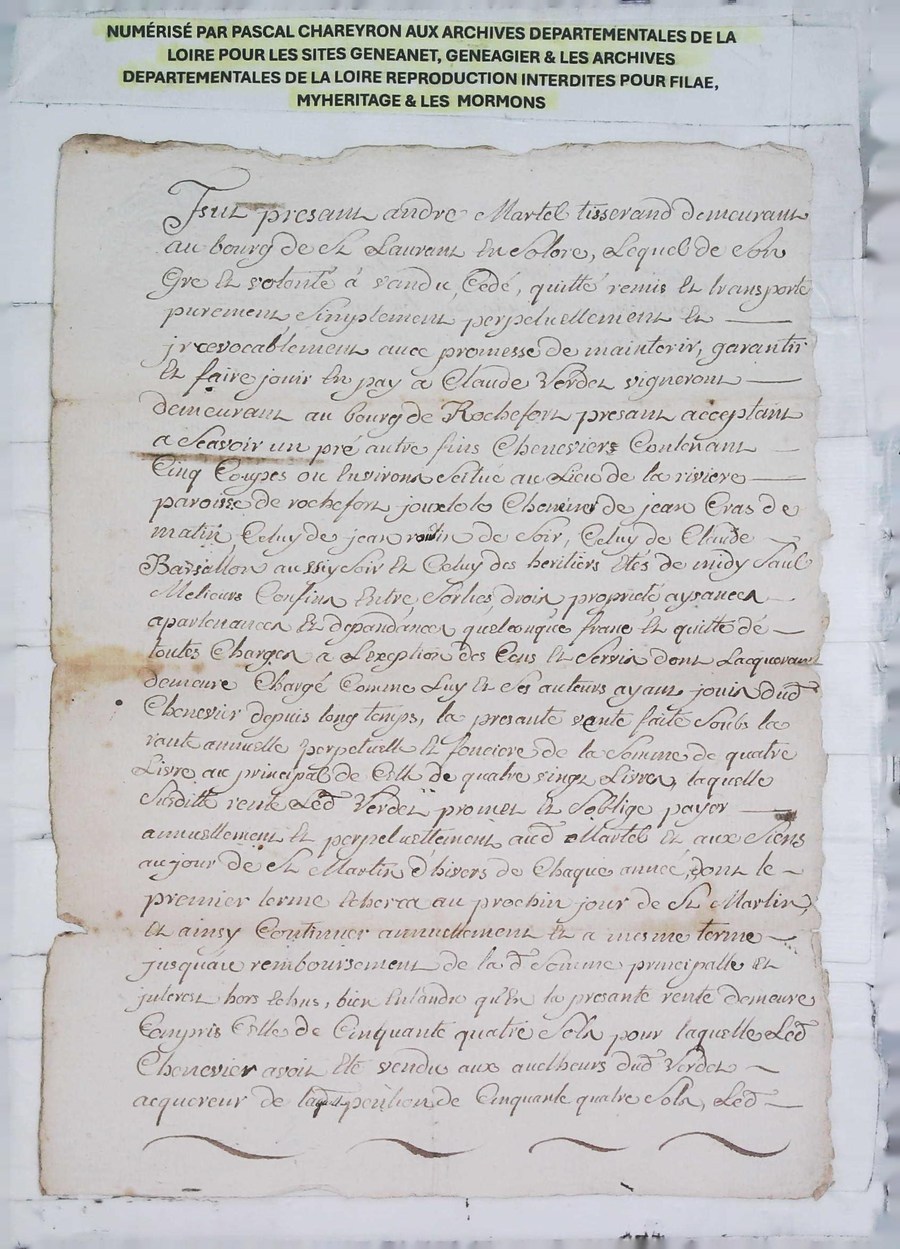 NUMÉRISÉ PAR PASCAL CHAREYRON AUX ARCHIVES DEPARTEMENTALES DE LA
LOIRE POUR LES SITES GENEANET, GENEAGIER & LES ARCHIVES
DEPARTEMENTALES DE LA LOIRE REPRODUCTION INTERDITES POUR FILAE,
MYHERITAGE & LES MORMONS
Fut presant andre Martel tisserand demeurant
au bourg de St Laurant En Solore, Lequel de Son
Gre Et volonté à vandu, Cédé, quitté remis Et transporté
purement Simplement perpetuellement Et
jrrevocablement avec promesse de maintenir, garantir
Et faire jouir En pay a Claude Verdet vigneront
demeurant au bourg de Rochefort presant acceptant
a Scavoir un pré autre fois Chenevier Contenant
Cinq Coupes ou Environs Scitué au Lieu de la riviere
paroisse de rochefort jouxte le Chenevier de jean Cras de
matin, Celuy de jean de Soir, Celuy de Claude
Barsallon aussy Soir Et Celuy des heritiers de midy Sauf
Melieurs Confins Entré Sorties, drois propriété aysances
apartenances Et dépandances quelconque franc Et quitte de
toutes Charges a Lexception des Cens Et Servis dont Lacquereur
demeure Chargé Comme Luy Et Ses auteurs ayant jouis dud
Chenevier depuis long temps, la presante vante faite Soubs la
rante annuelle perpetuelle Et fonciere de la Somme de quatre
Livre au principal de Celle de quatre vingt Livres, laquelle
Susditte rente Led Verdet promet Et Soblige payer
annuellement Et perpetuellement aud Martel Et aux Siens
au jour de St Martin d'hivers de Chaque année, dont le
premier terme Echerra au prochin jour de St Martin,
Et ainsy Continuer annuellement Et a mesme terme
jusquau remboursement de la d Somme principalle Et
juterest hors Echus, bien Entandu qu'En la presante rente demeure
Compris Celle de Cinquante quatre Sols pour laquelle Led
Chenevier avoit Eté vendu aux autheurs dud Verdet
acquereur de de Cinquante quatre Sols, Led